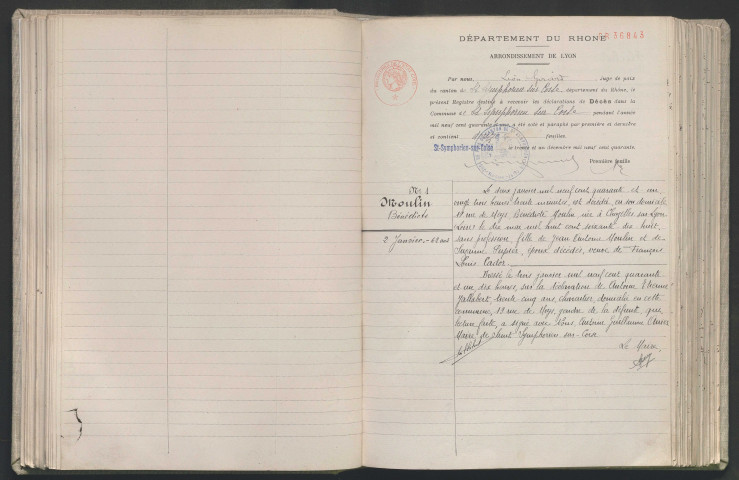 DÉPARTEMENT DU RHONE
ARRONDISSEMENT DE LYON
Par nous, Léon juge de paix
du canton de St Symphorien sur Coise département du Rhône, le
présent Registre destiné à recevoir les déclarations de Décès dans la
Commune d St Symphorien sur Coise pendant l'année
mil neuf cent quarante et un, a été coté et paraphé par première et dernière
et contient feuilles.
St-Symphorien-sur-Coise le trente et un décembre mil neuf cent quarante.
Première feuille
No 1
Moulin
Bénédicte
2 Janvier - 62 ans
Le deux janvier mil neuf cent quarante et un,
vingt trois heures trente minutes, est décédée, en son domicile
rue de Bénédicte Moulin née à Chazelles sur Lyon
Loire, le dix mai mil huit cent soixante dix huit,
sans profession, fille de Jean Antoine Moulin et de
Suzanne époux décédés, veuve de François
Louis
Dressé le trois janvier mil neuf cent quarante
et un, dix heures, sur la déclaration de Antoine Etienne
Jallabert trente cinq ans, charcutier, domicilié en cette
commune, rue de gendre de la défunte, qui,
lecture faite, a signé avec Nous, Antoine Guillaume
Maire de Saint Symphorien sur Coise
Le Maire,